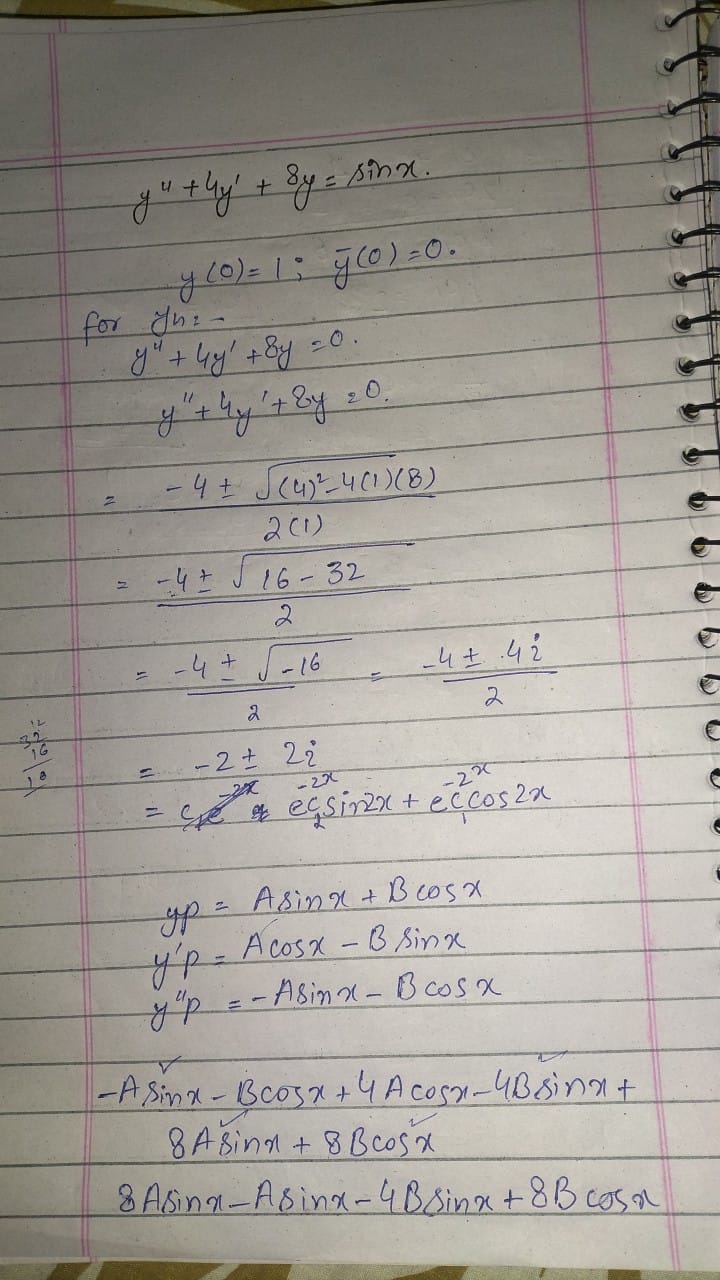 y" + 4y' + 8y = sinx.
y(0) = 1 ; ȳ(0) = 0.
for yh :-
y" + 4y' + 8y = 0.
y" + 4y' + 8y = 0.
= -4 ± √(4)² - 4(1)(8) / 2(1)
= -4 ± √16 - 32 / 2
= -4 ± √-16 / 2 = -4 ± 4i / 2
= -2 ± 2i
= e^-2x c₂ sin2x + e^-2x c₁ cos2x
yp = Asinx + Bcosx
y'p = Acosx - Bsinx
y"p = -Asinx - Bcosx
-Asinx - Bcosx + 4Acosx - 4Bsinx +
8Asinx + 8Bcosx
8Asinx - Asinx - 4Bsinx + 8Bcosx